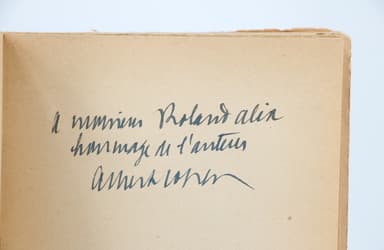 A monsieur Roland Alix
hommage de l'auteur
Albert Cohen